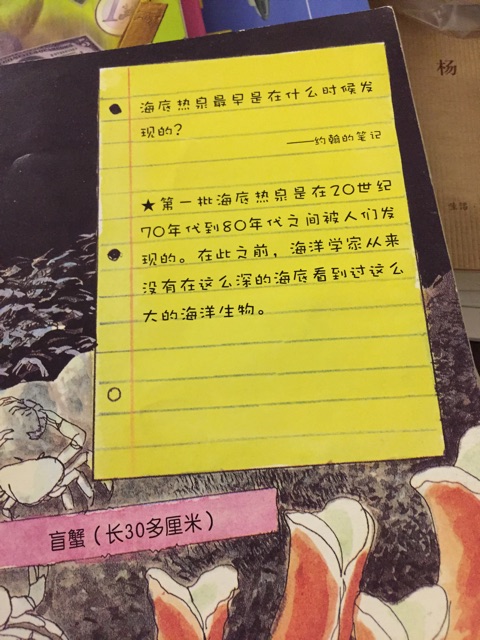 杨
海底热泉最早是在什么时候发
现的?
——约翰的笔记
★第一批海底热泉是在20世纪
70年代到80年代之间被人们发
现的。在此之前，海洋学家从来
没有在这么深的海底看到过这么
大的海洋生物。
盲蟹（长30多厘米）